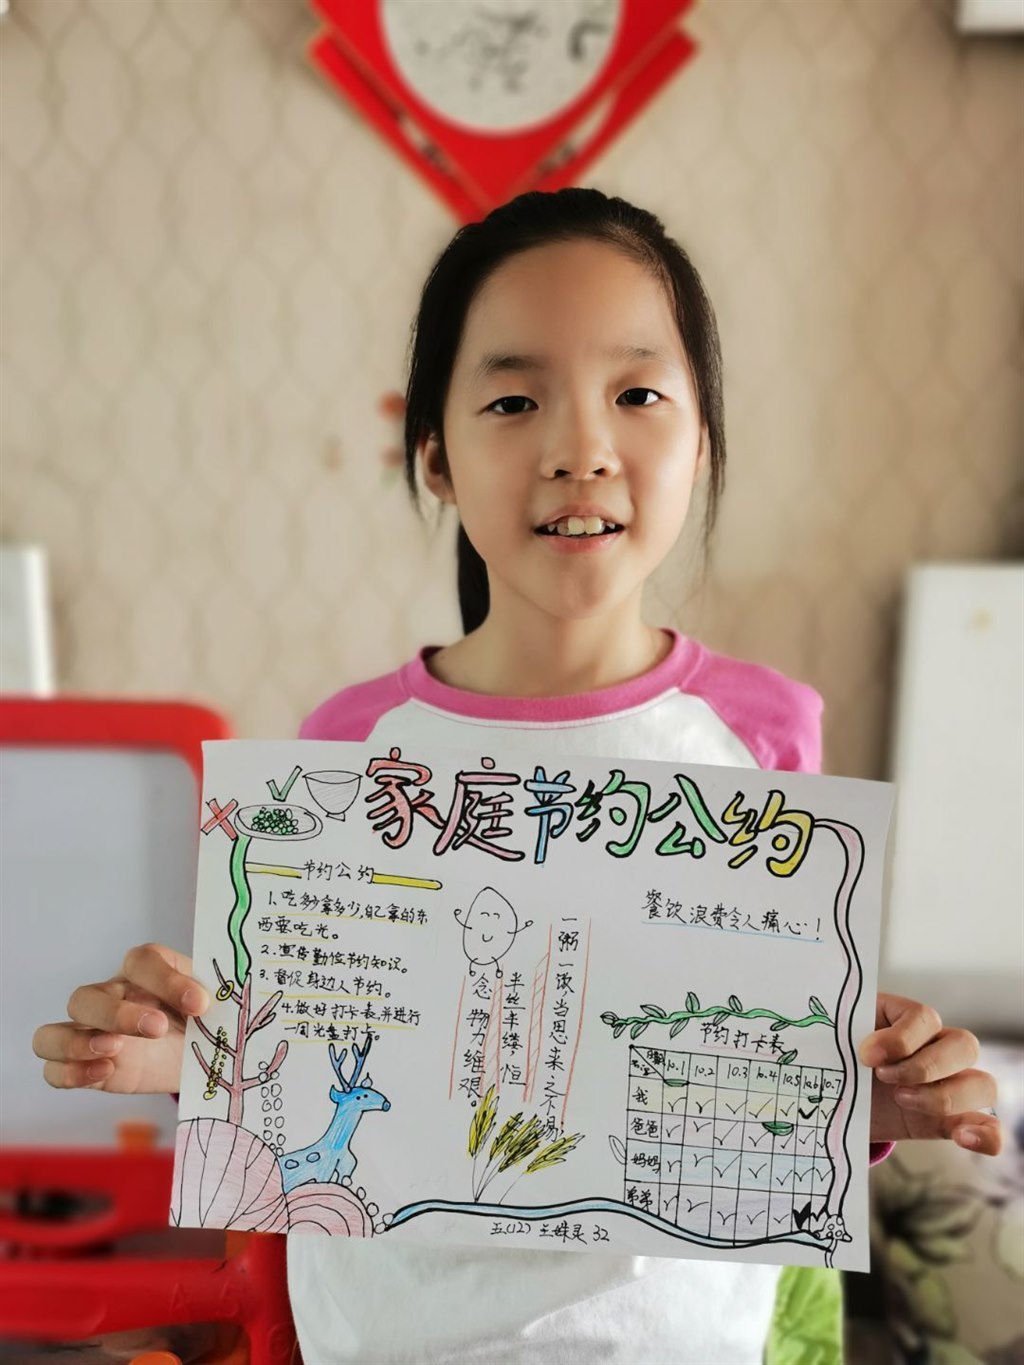 家庭节约公约
节约公约
1、吃多少拿多少,自己拿的东
西要吃光。
2.宣传勤俭节约知识。
3.督促身边人节约。
4.做好打卡表,并进行
一周光盘打卡。
一粥一饭,当思来之不易;
半丝半缕,恒
念物力维艰。
餐饮浪费令人痛心!
节约打卡表
日期 10.1 10.2 10.3 10.4 10.5 10.6 10.7
我 ✓ ✓ ✓ ✓ ✓ ✓ ✓
爸爸 ✓ ✓ ✓ ✓ ✓ ✓ ✓
妈妈 ✓ ✓ ✓ ✓ ✓ ✓ ✓
弟弟 ✓ ✓ ✓ ✓ ✓
五(12) 王姝灵 32